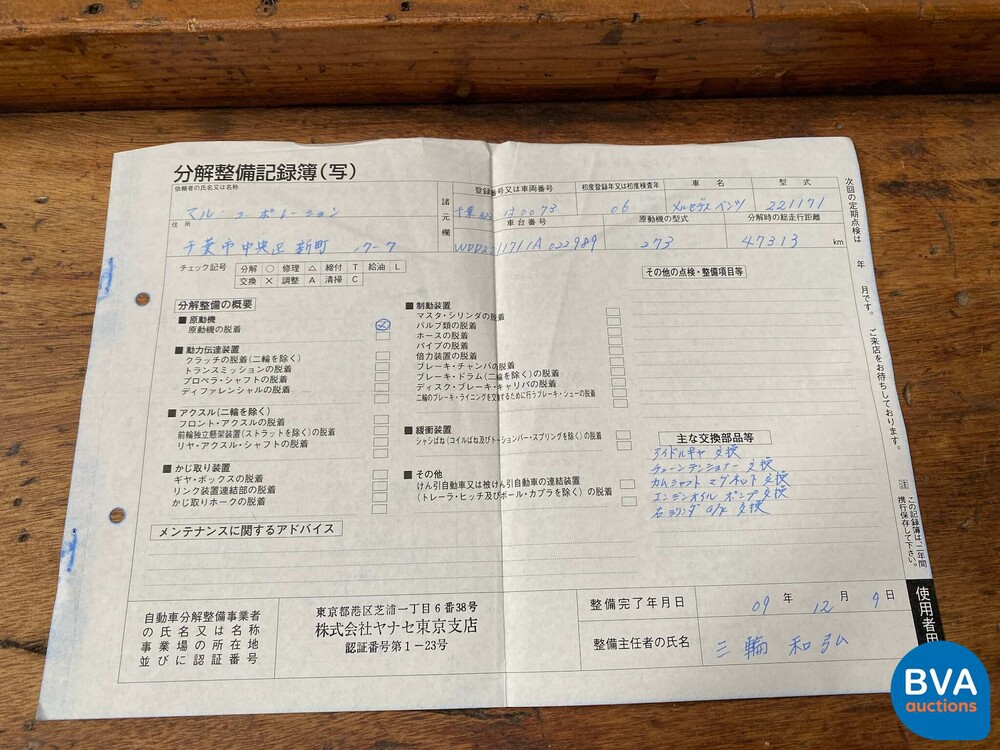 分解整備記録簿(写)
依頼者の氏名又は名称
マル・コーポレーション
住所
千葉市中央区新町 17-7
諸元欄
登録番号又は車両番号
初度登録年又は初度検査年
車名
型式
千葉 への 0073
06
メルセデス ベンツ
221171
車台番号
原動機の型式
分解時の総走行距離
WDD2211711A022989
273
47313 km
チェック記号
分解 ○ 修理 △ 締付 T 給油 L
交換 × 調整 A 清掃 C
その他の点検・整備項目等
分解整備の概要
■ 原動機
原動機の脱着
■ 動力伝達装置
クラッチの脱着(二輪を除く)
トランスミッションの脱着
プロペラ・シャフトの脱着
ディファレンシャルの脱着
■ アクスル(二輪を除く)
フロント・アクスルの脱着
前輪独立懸架装置(ストラットを除く)の脱着
リヤ・アクスル・シャフトの脱着
■ かじ取り装置
ギヤ・ボックスの脱着
リンク装置連結部の脱着
かじ取りホークの脱着
■ 制動装置
マスタ・シリンダの脱着
バルブ類の脱着
ホースの脱着
パイプの脱着
倍力装置の脱着
ブレーキ・チャンバの脱着
ブレーキ・ドラム(二輪を除く)の脱着
ディスク・ブレーキ・キャリパの脱着
二輪のブレーキ・ライニングを交換するために行うブレーキ・シューの脱着
■ 緩衝装置
シャシばね(コイルばね及びトーションバー・スプリングを除く)の脱着
■ その他
けん引自動車又は被けん引自動車の連結装置
(トレーラ・ヒッチ及びボール・カプラを除く)の脱着
主な交換部品等
アイドルギヤ 交換
チェーンテンショナー 交換
カムシャフト マグネット 交換
エンジンオイル ポンプ 交換
右シリンダ G/K 交換
メンテナンスに関するアドバイス
自動車分解整備事業者
の氏名又は名称
事業場の所在地
並びに認証番号
東京都港区芝浦一丁目6番38号
株式会社ヤナセ東京支店
認証番号第1-23号
整備完了年月日
09 年 12 月 9 日
整備主任者の氏名
三輪 和弘
次回の定期点検は 年 月です。ご来店をお待ちしております。
注 この記録簿は、二年間
携行保存して下さい。
使用者用
BVA
auctions